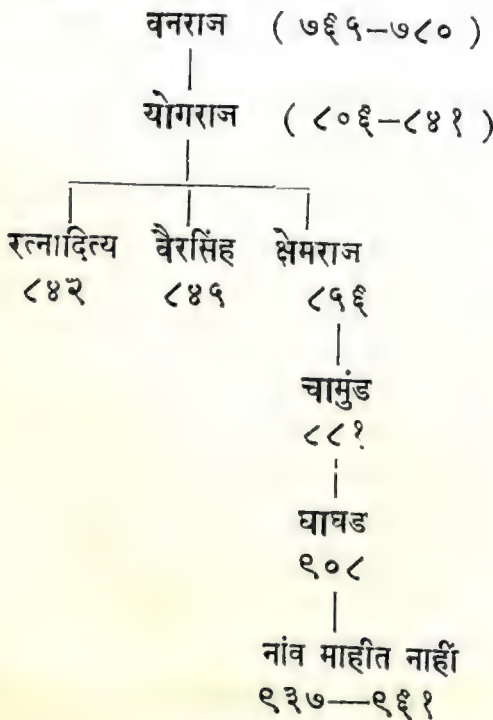 वनराज ( ७६५–७८० )
योगराज ( ८०६–८४१ )
रत्नादित्य वैरसिंह क्षेमराज
८४२ ८४५ ८५६
चामुंड
८८१
घाघड
९०८
नांव माहीत नाहीं
९३७—९६१